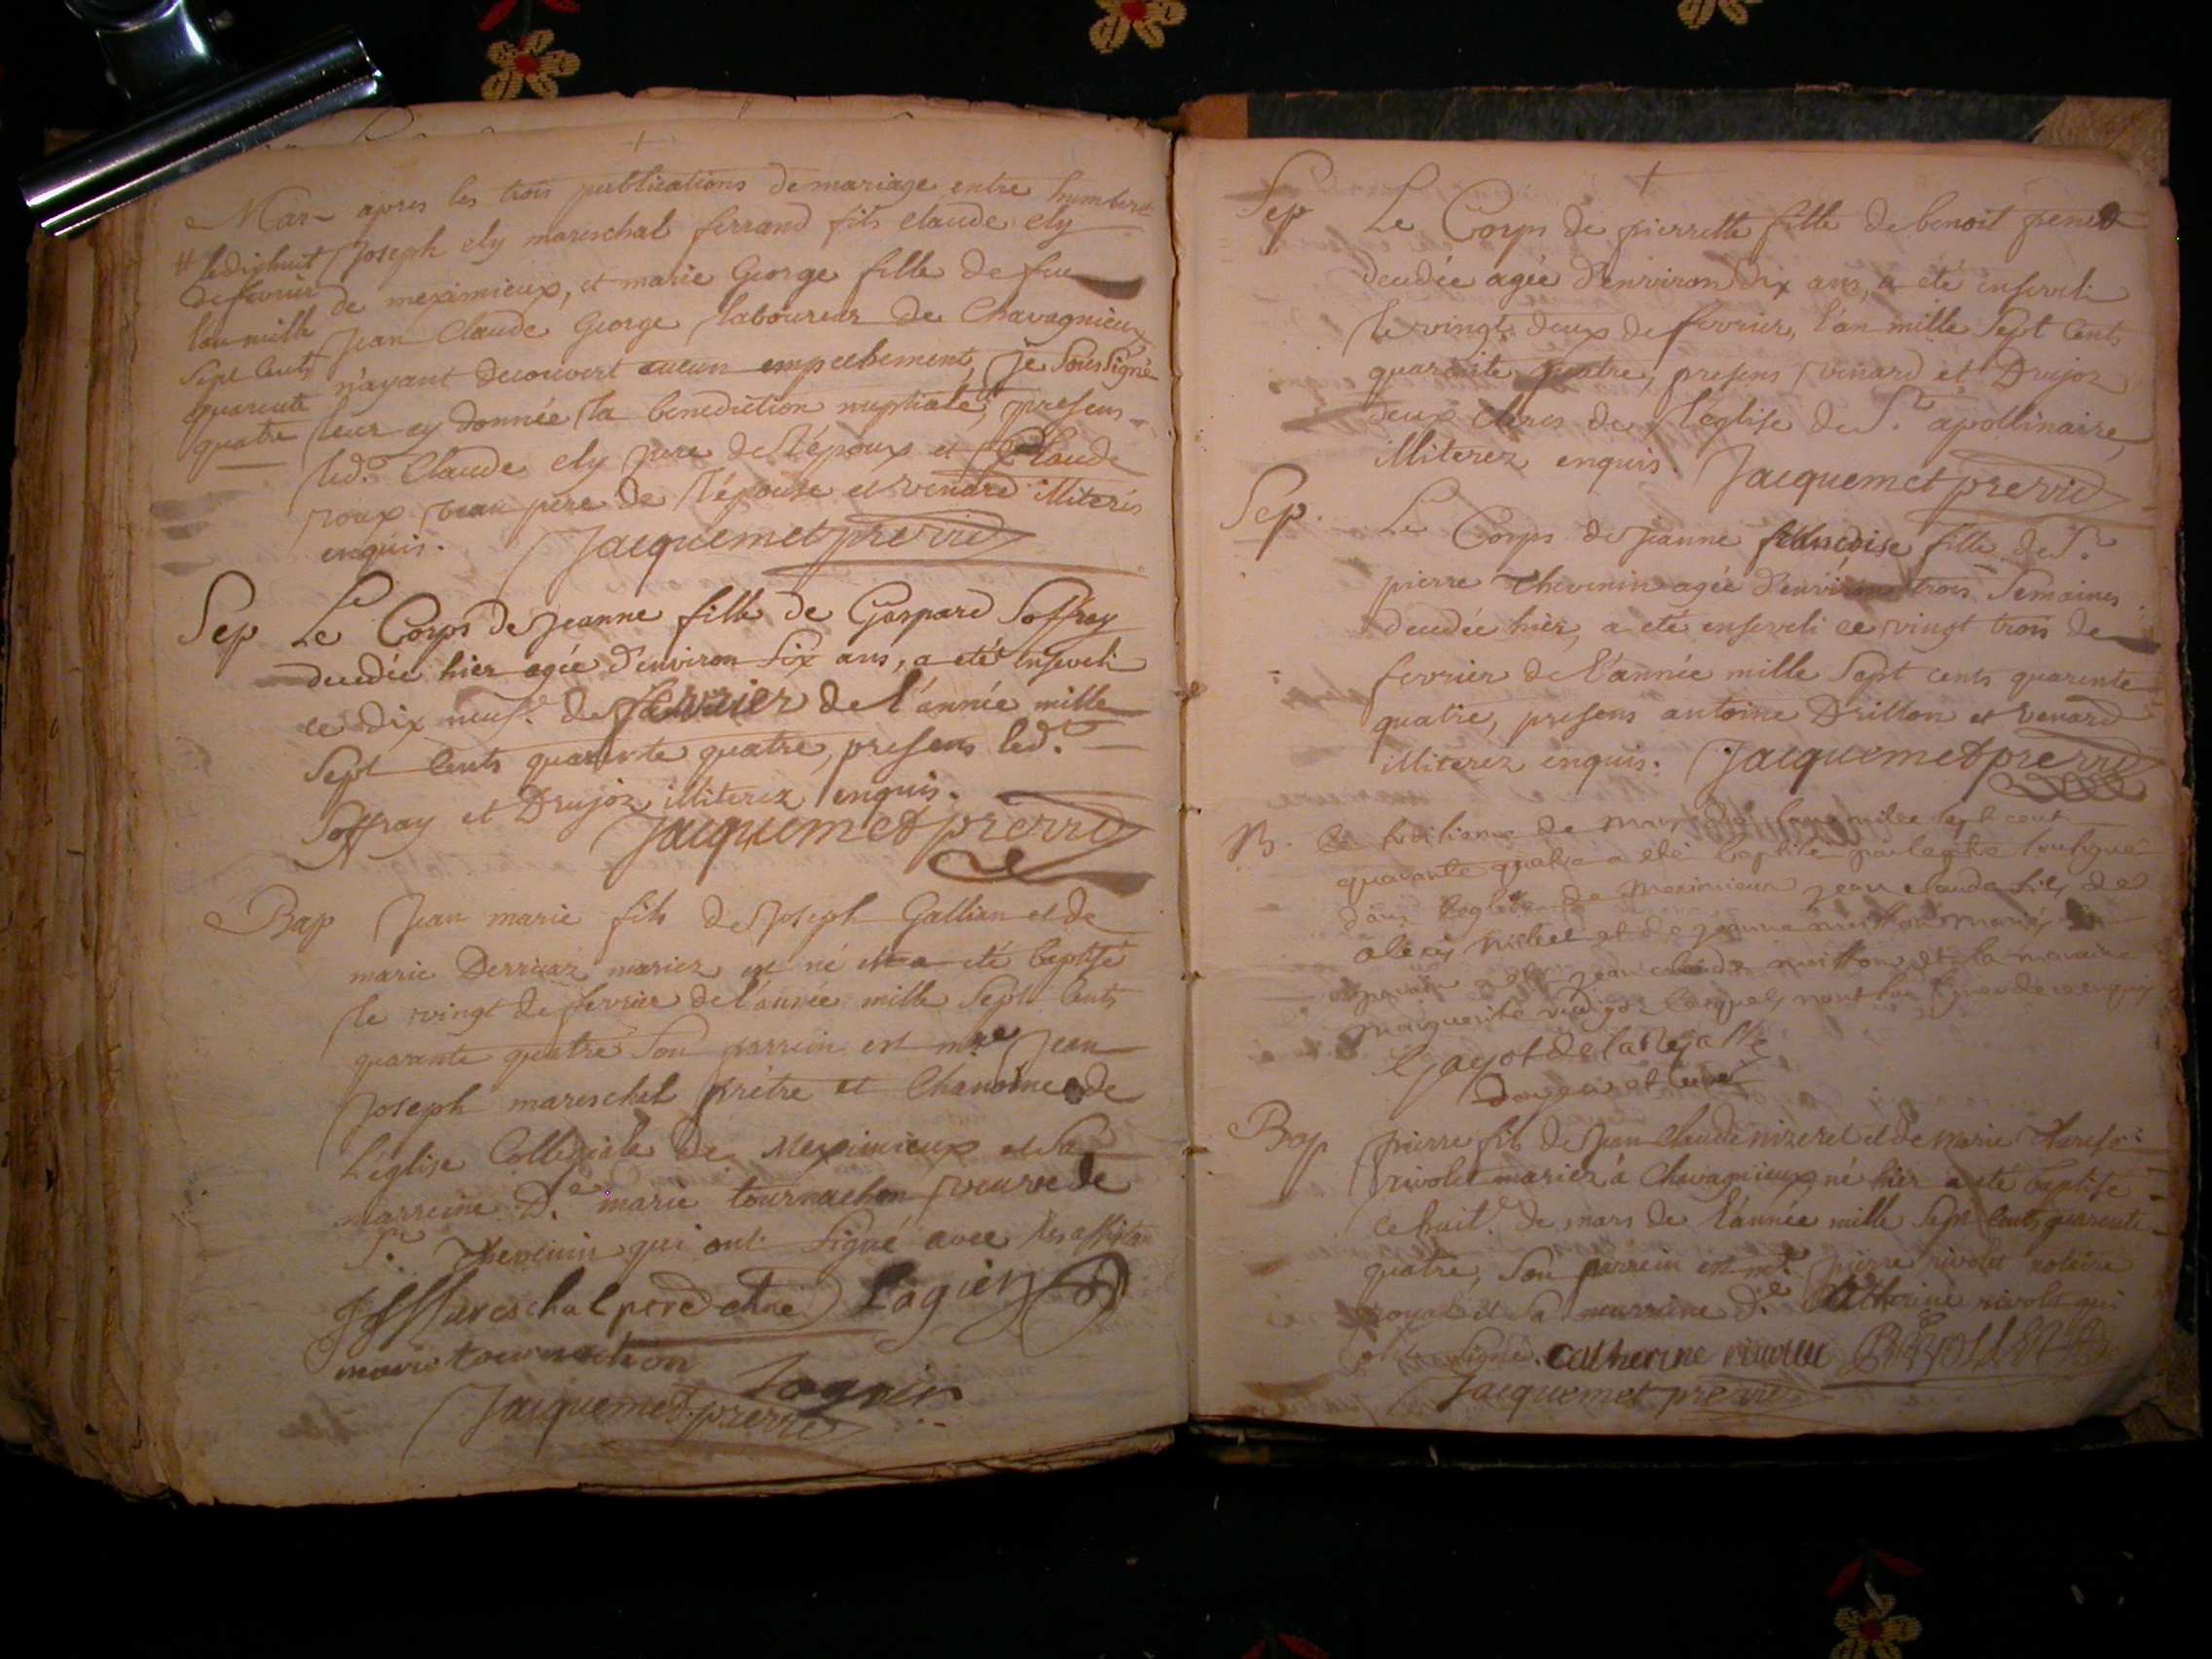 Mar~ apres les trois publications de mariage entre humbert
Joseph ely mareschal ferrand fils claude ely
de meximieux, et marie George fille de feu
Jean Claude George laboureur de Chavagnieux
n'ayant decouvert aucun empechement, je sousigné
leur ay donnée la benediction nuptiale, # presens
led. Claude ely pere de l'époux et Claude
roux beau pere de l'épouse et venard illiterés
enquis. Jacquemet pre vic
# le dixhuit
de fevrier
l'an mille
sept cents
quarente
quatre
Sep Le Corps de Jeanne fille de Gaspard Soffray
decedée hier agée d'environ six ans, a eté enseveli
ce dix neuf.e de fevrier de l'année mille
sept cents quarente quatre, presens led.t
Soffray et Drujoz illiterez enquis.
Jacquemet pre vic
Bap Jean marie fils de Joseph Gallien et de
marie Derriaz mariez est né et a eté baptisé
le vingt de fevrier de l'année mille sept cents
quarente quatre son parrein est m.re Jean
Joseph mareschal prêtre et Chanoine de
l'église Collegiale de Meximieux et sa
marreine D.e marie tournachon veuve de
S.r Thevenin qui ont signé avec les assistans
JJ Mareschal ptre chne Logier
marie tournachon Logier
Jacquemet pre vic
Sep Le Corps de pierrette fille de benoit
decedée agée d'environ dix ans, a eté enseveli
le vingt deux de fevrier, l'an mille sept cents
quarente quatre, presens venard et Drujoz
deux clercs de l'eglise de S.t apollinaire,
illiterez enquis. Jacquemet pre vic
Sep. Le Corps de Jeanne françoise fille de S.r
pierre Thevenin agée d'environ trois semaines
decedée hier, a eté enseveli ce vingt trois de
fevrier de l'année mille sept cents quarente
quatre, presens antoine Drillon et venard
illiterez enquis. Jacquemet pre vic
B. Le huitieme de mars de lan mille sept cent
quarante quatre a eté baptisé par le ptre soussigné
dans l'eglise de Meximieux jean claude fils de
alexis et de jeanne mariés
parrain a eté jean claude et la maraine
marguerite lesquels nont sceu signer de ce enquis
Gayot de la
doyen et curé
Bap pierre fils de Jean Claude nizeret et de marie Therese
rivolet mariez à Chavagnieux, né hier a eté baptisé
ce huit.e de mars de l'année mille sept cents quarente
quatre, son parrein est m.e pierre rivolet notaire
royal et sa marreine D.e Catherine rivolet qui
ont signé. catherine rivollet Rivollet
Jacquemet pre vic